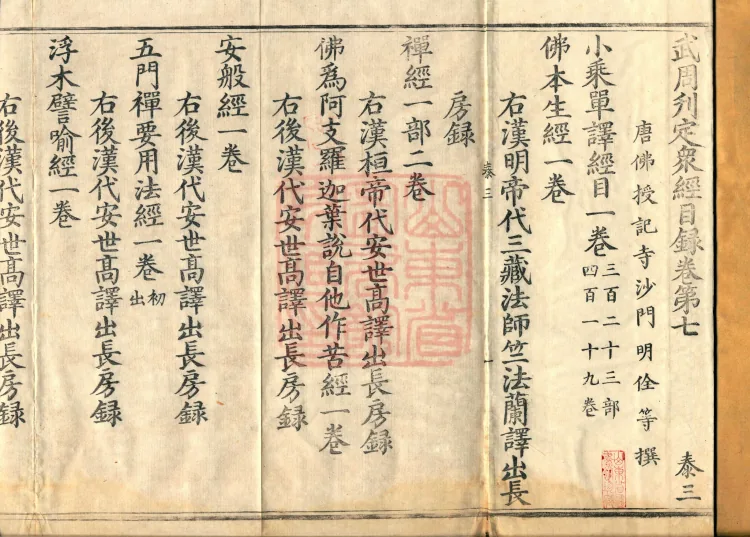 武周刋定衆經目録卷第七　泰三
唐佛授記寺沙門明佺等撰
小乘單譯經目一卷三百二十三部四百一十九卷
佛本生經一卷
右漢明帝代三藏法師竺法蘭譯出長
泰三
一
房録
禪經一部二卷
右漢桓帝代安世髙譯出長房録
佛爲阿支羅迦葉說自他作苦經一卷
右後漢代安世髙譯出長房録
安般經一卷
右後漢代安世髙譯出長房録
五門禪要用法經一卷初出
右後漢代安世髙譯出長房録
浮木譬喻經一卷
右後漢代安世髙譯出長房録